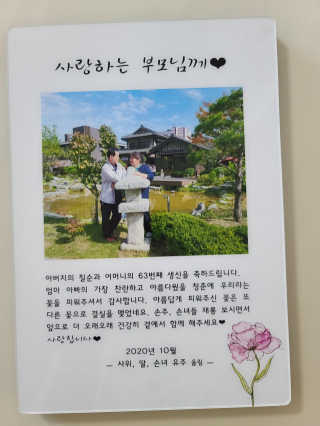 사랑하는 부모님께❤
아버지의 칠순과 어머니의 63번째 생신을 축하드립니다.
엄마 아빠의 가장 찬란하고 아름다웠을 청춘에 우리라는
꽃을 피워주셔서 감사합니다. 아름답게 피워주신 꽃은 또
다른 꽃으로 결실을 맺었네요. 손주, 손녀들 재롱 보시면서
앞으로 더 오래오래 건강히 곁에서 함께 해주세요❤
사랑합니다❤
2020년 10월
— 사위, 딸, 손녀 유주 올림 —